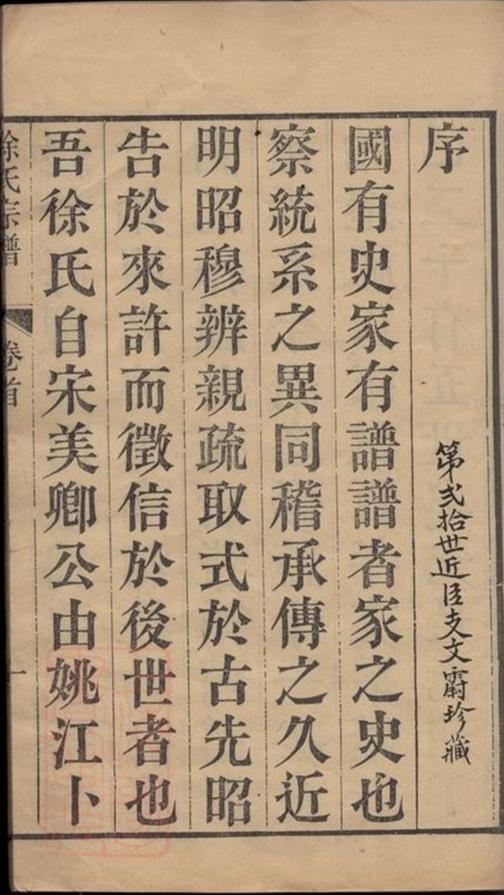 序
第弍拾世近臣支文霨珍藏
國有史家有譜譜者家之史也
察統系之異同稽承傳之久近
明昭穆辨親疏取式於古先昭
告於來許而徵信於後世者也
吾徐氏自宋美卿公由姚江卜
徐氏宗譜
卷首
一